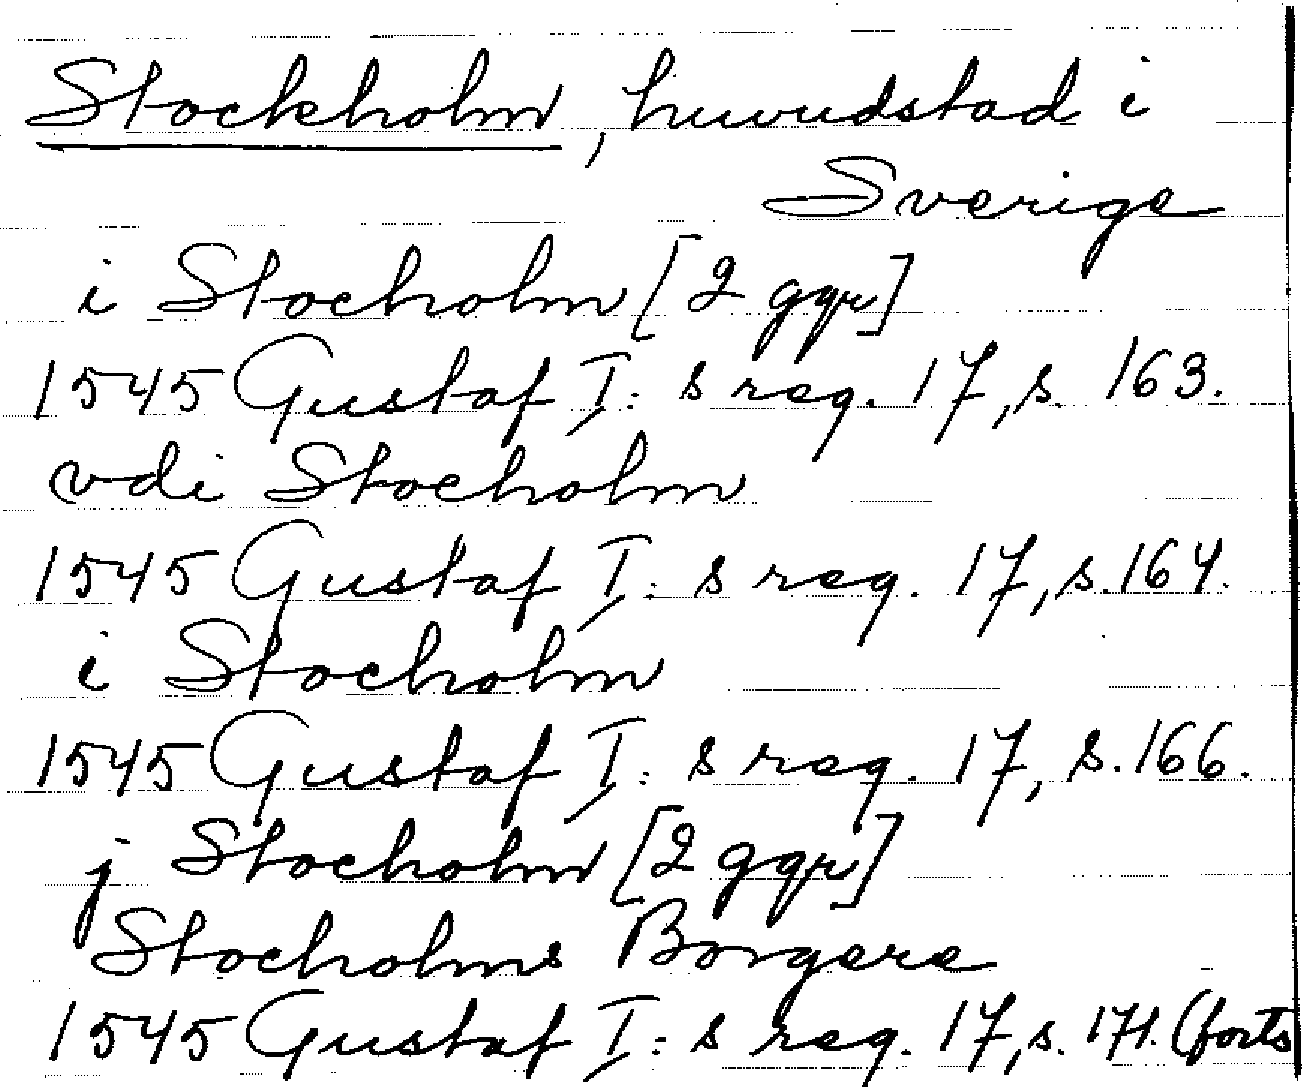 Stockholm, huvudstad i
Sverige
i Stocholm [2 ggr]
1545 Gustaf I:s reg. 17, s. 163.
vdi Stocholm
1545 Gustaf I:s reg. 17, s. 164.
i Stocholm
1545 Gustaf I:s reg. 17, s. 166.
j Stocholm [2 ggr]
Stocholms Borgere
1545 Gustaf I:s reg. 17, s. 171. (forts